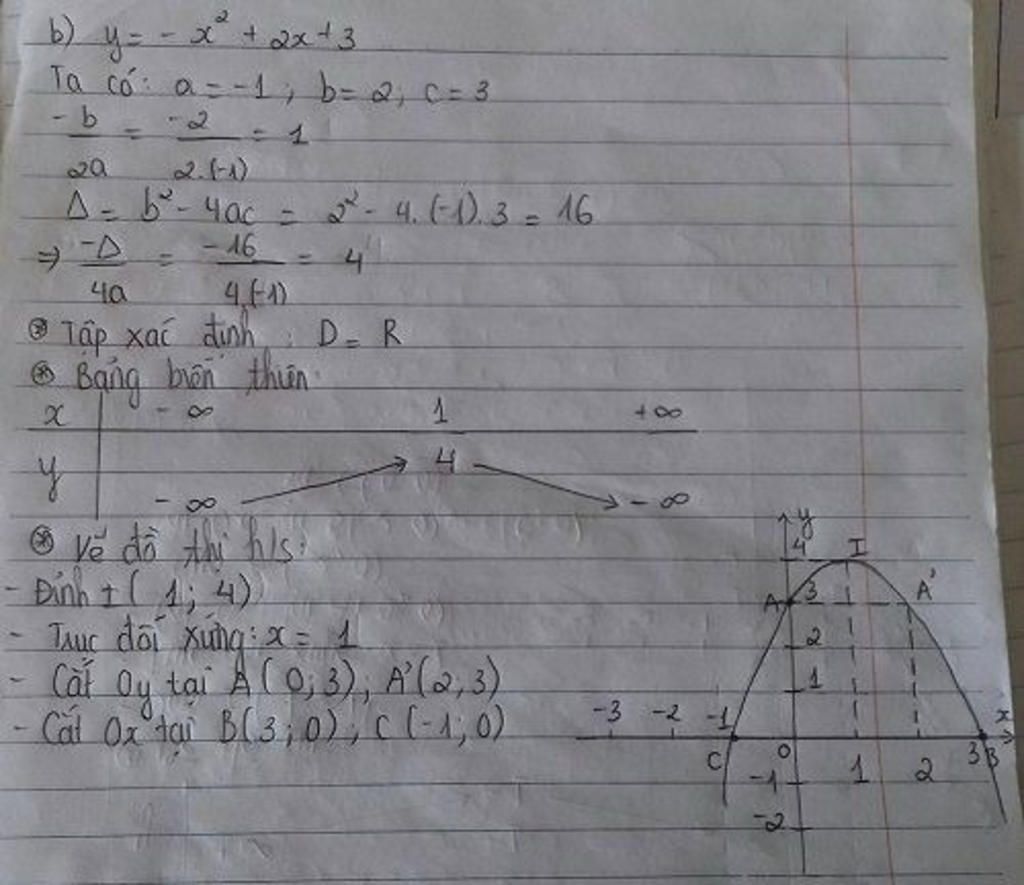 b) y = - x² + 2x + 3
Ta có: a = -1; b = 2; c = 3
-b/2a = -2/2.(-1) = 1
Δ = b² - 4ac = 2² - 4.(-1).3 = 16
⇒ -Δ/4a = -16/4.(-1) = 4
⊛ Tập xác định : D = R
⊛ Bảng biến thiên
x - ∞ 1 + ∞
y 4
- ∞ - ∞
⊛ Vẽ đồ thị h/s:
- Đỉnh I (1; 4)
- Trục đối xứng: x = 1
- Cắt Oy tại A(0;3); A'(2,3)
- Cắt Ox tại B(3;0); C(-1;0)
y
4 I
A 3 A'
2
1
-3 -2 -1 x
C O 1 2 3 B
-1
-2